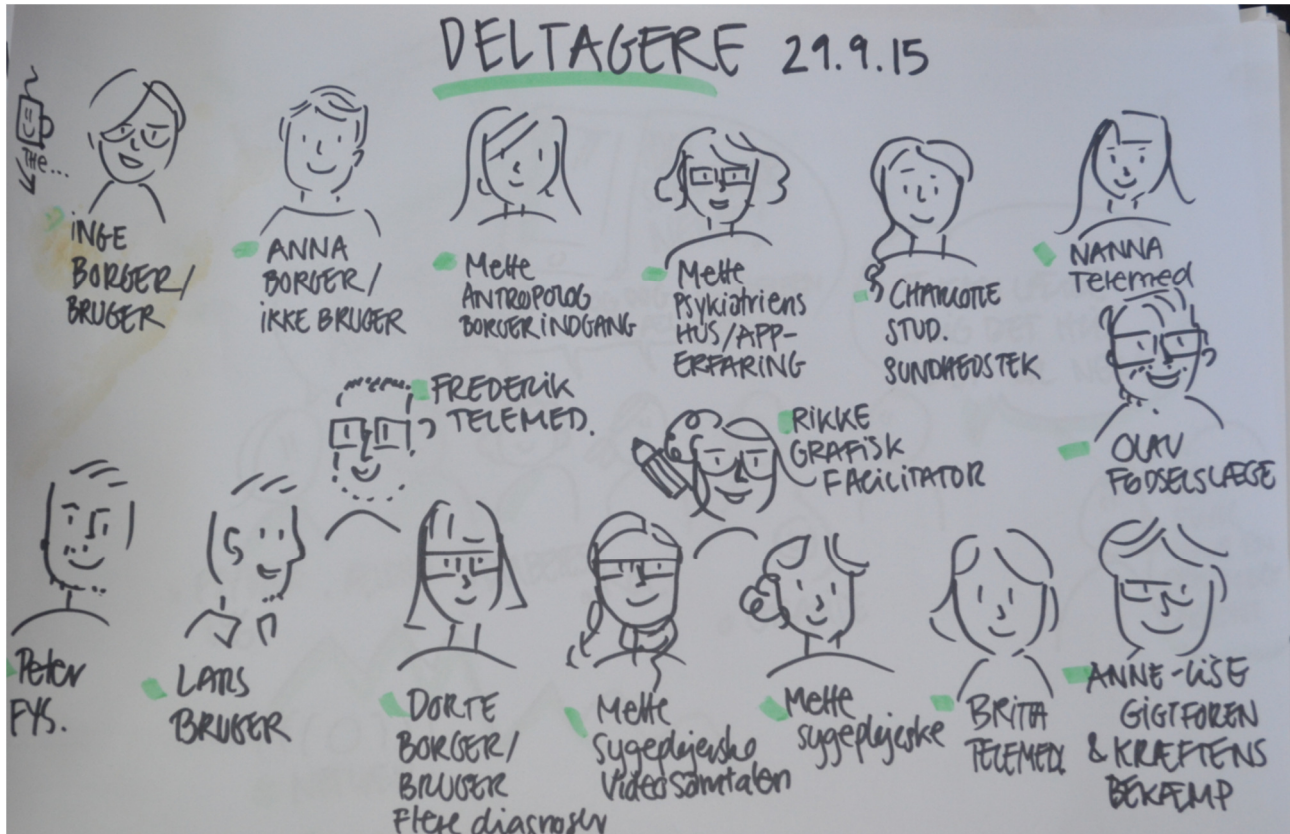 DELTAGERE 29.9.15
THE...
INGE
BORGER/
BRUGER
ANNA
BORGER/
IKKE BRUGER
Mette
ANTROPOLOG
BORGERINDGANG
Mette
Psykiatriens
HUS/APP-
ERFARING
CHARLOTTE
STUD.
SUNDHEDSTEK
NANNA
Telemed
FREDERIK
TELEMED.
RIKKE
GRAFISK
FACILITATOR
OLAV
FØDSELSLÆGE
Peter
FYS.
LARS
BRUGER
DORTE
BORGER/
BRUGER
Flere diagnoser
Mette
Sygeplejerske
Videosamtalen
Mette
sygeplejerske
BRITA
TELEMED.
ANNE-LISE
GIGTFOREN
& KRÆFTENS
BEKÆMP